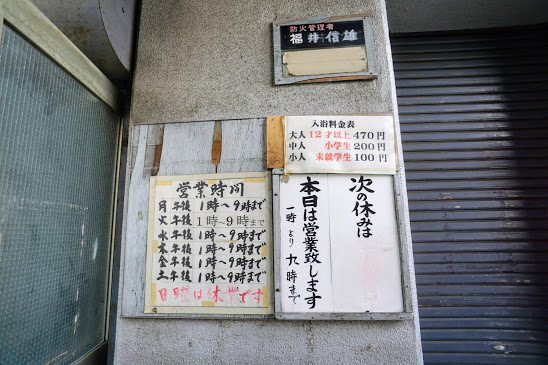 防火管理者
福井信雄
入浴料金表
大人 12才以上 470円
中人 小学生 200円
小人 未就学生 100円
営業時間
月 午後 1時〜9時まで
火 午後 1時〜9時まで
水 午後 1時〜9時まで
木 午後 1時〜9時まで
金 午後 1時〜9時まで
土 午後 1時〜9時まで
日曜は休業です
次の休みは
本日は営業致します
一時より九時まで